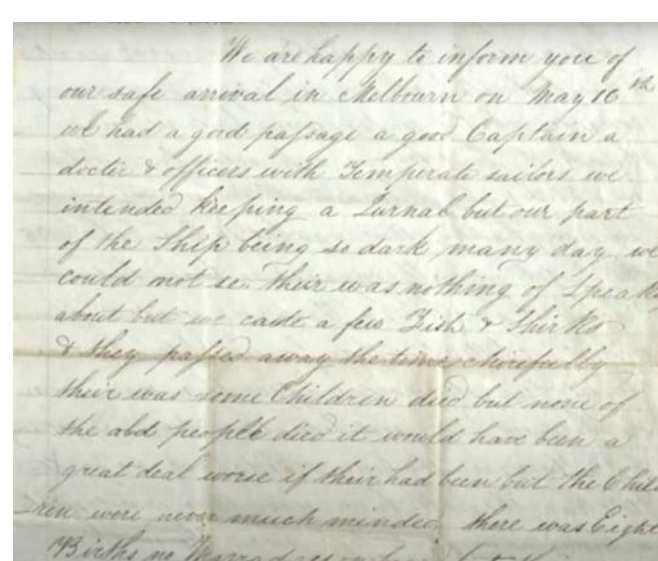 We are happy to inform you of
our safe arrival in Melbourn on May 16th
we had a good passage a good Captain a
docter & officers with Temperate sailors we
intended keeping a Jurnal but our part
of the Ship being so dark many day we
could not se. their was nothing of Speak
about but we caute a few Fish & Shirks
& they passed away the time chirefully
their was some Children died but none of
the abd people died it would have been a
great deal worse if their had been but the Chil
-ren were never much minded. there was Eight
Births no